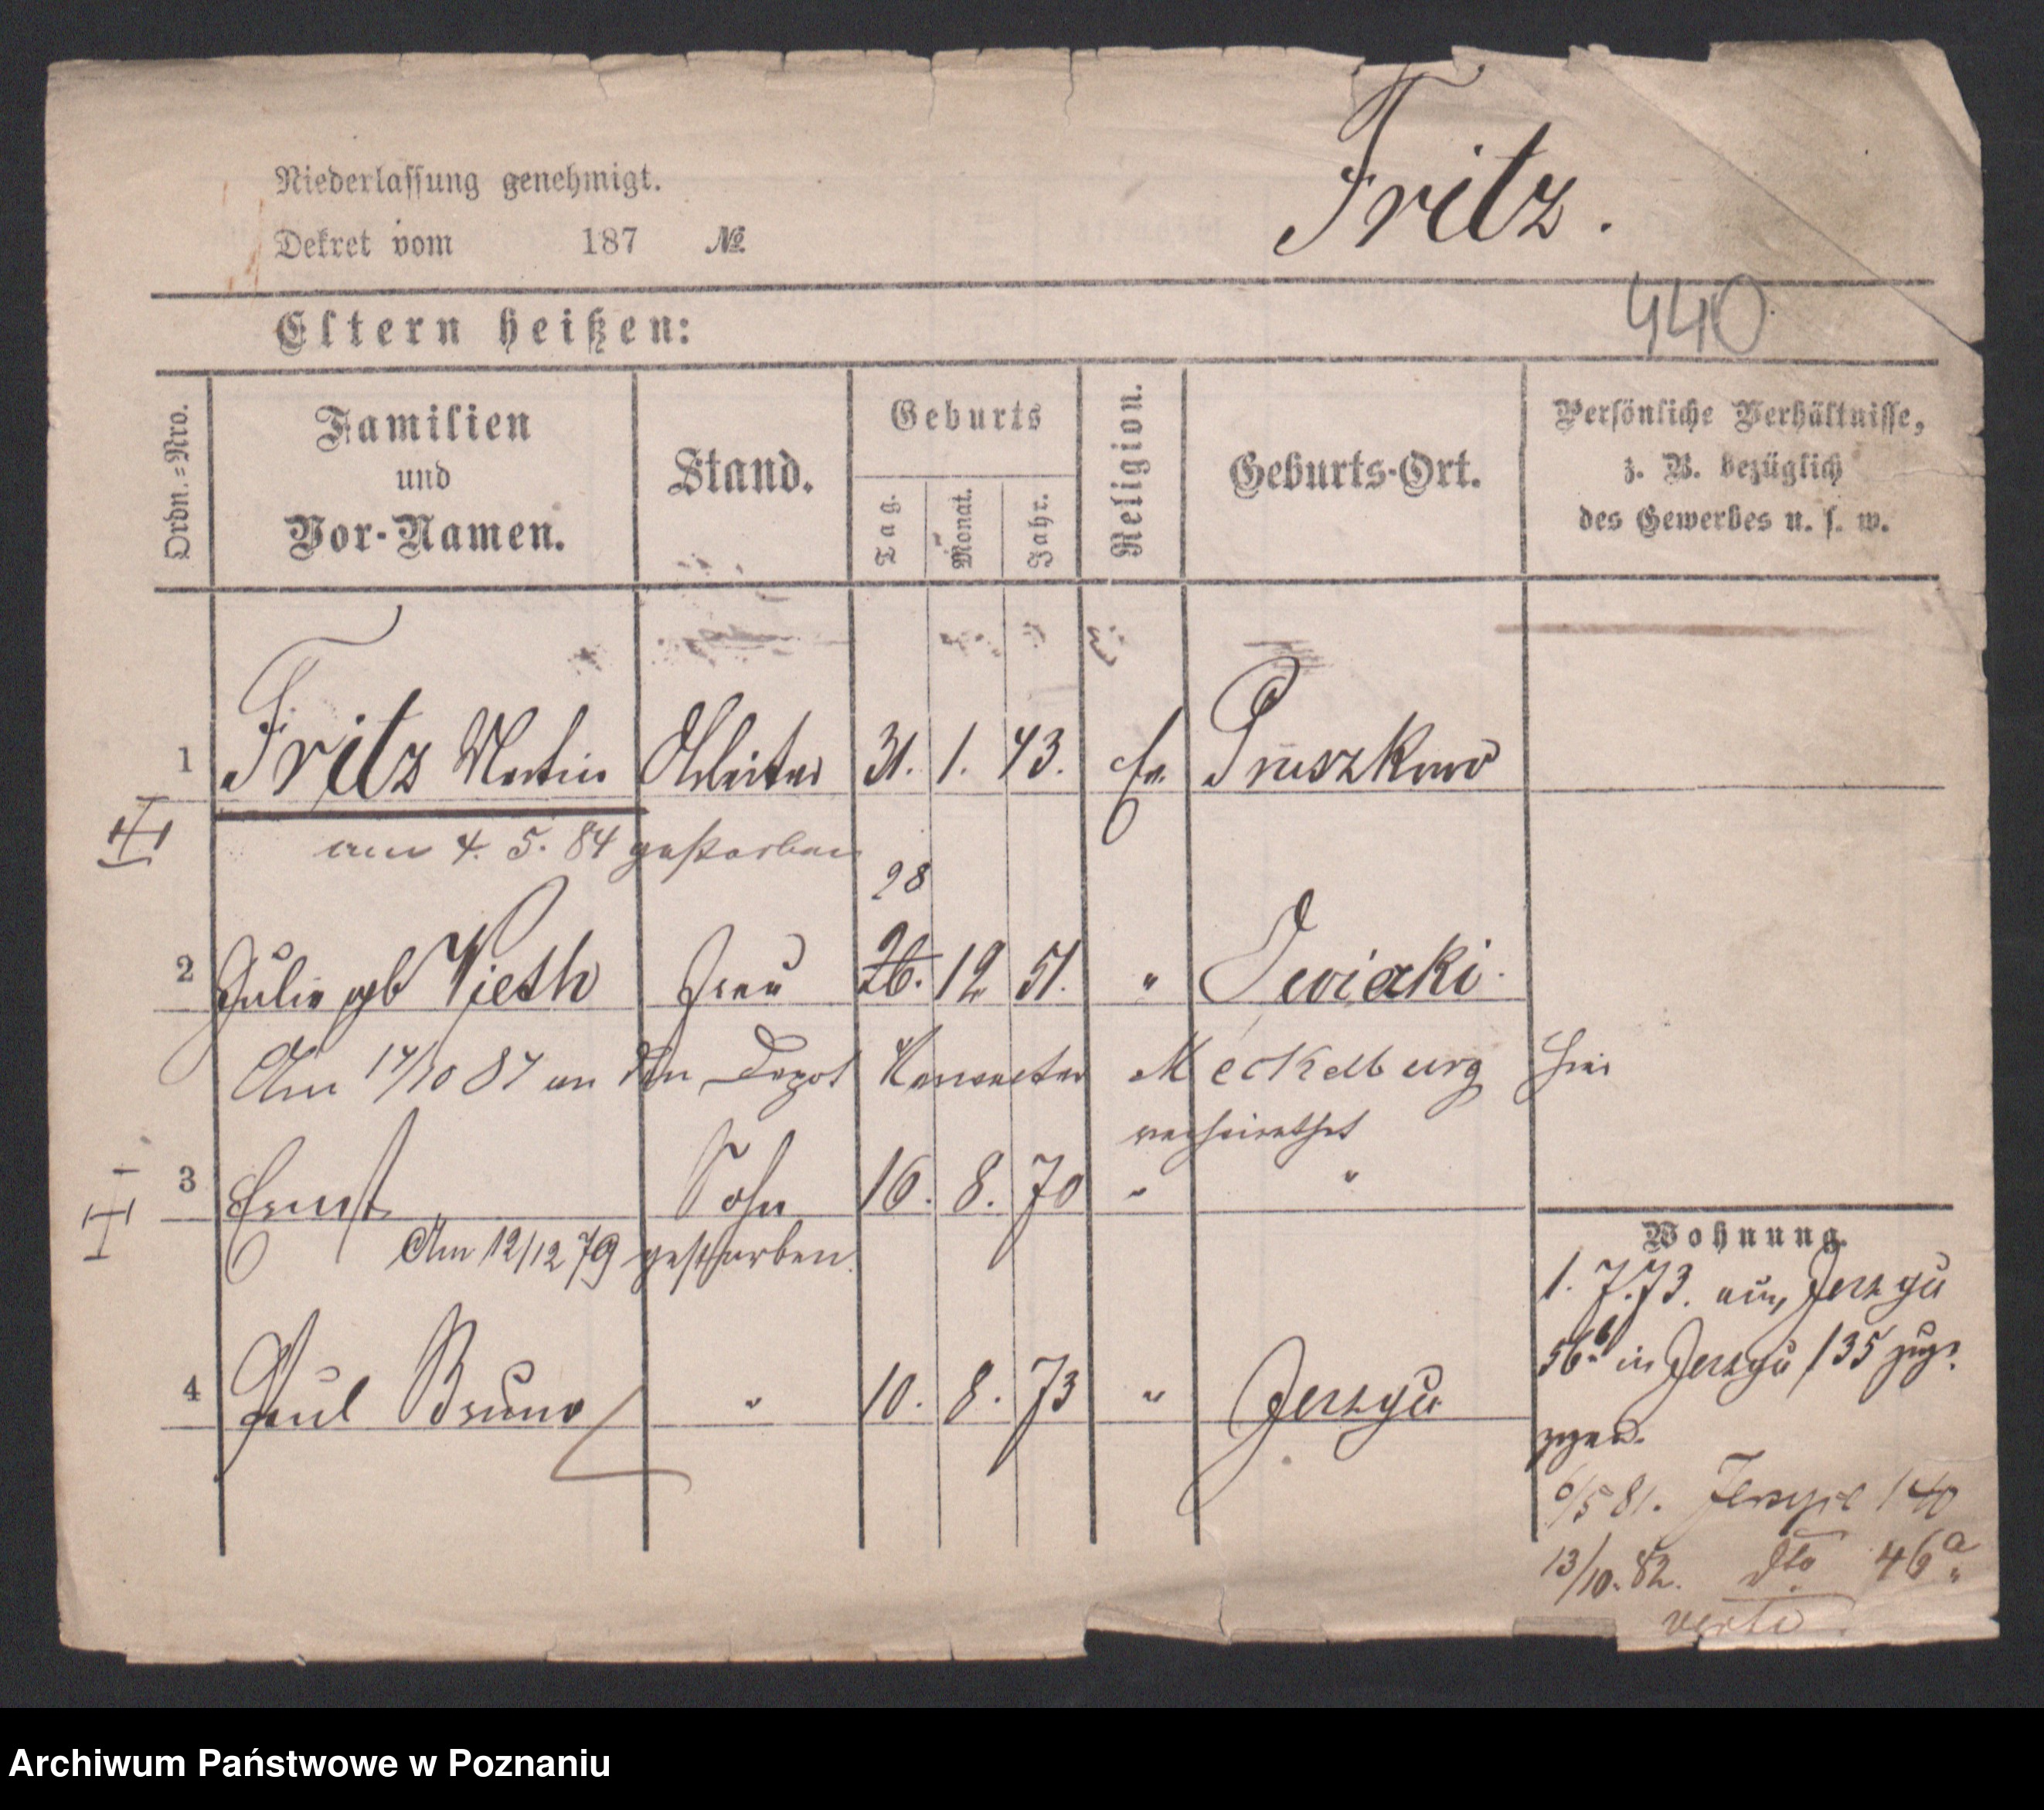 Niederlassung genehmigt.
Fritz.
Dekret vom 187 №
440
Eltern heißen:
Ordn.=Nro.
Familien
und
Vor-Namen.
Stand.
Geburts
Tag.
Monat.
Jahr.
Religion.
Geburts-Ort.
Persönliche Verhältnisse,
z. B. bezüglich
des Gewerbes u. s. w.
1 Fritz Martin Arbeiter 31. 1. 43. Ev. Pruszkowo
am 4. 5. 84 gestorben
28
2 Julie geb Vieth Frau 26. 12 51. "
Am 17/10 87 an den Depot Meckelburg hier
verheirathet
3 Ernst Sohn 16. 8. 70 " "
Am 12/12 79 gestorben.
4 Paul Bruno " 10. 8. 73 " Jerzyce
Wohnung.
1. 7. 73. aus Jerzyce
56b in Jerzyce 135 zuge-
zogen.
6/5 81. Jerzyce 140
13/10. 82. dto 46a
verte.
Archiwum Państwowe w Poznaniu